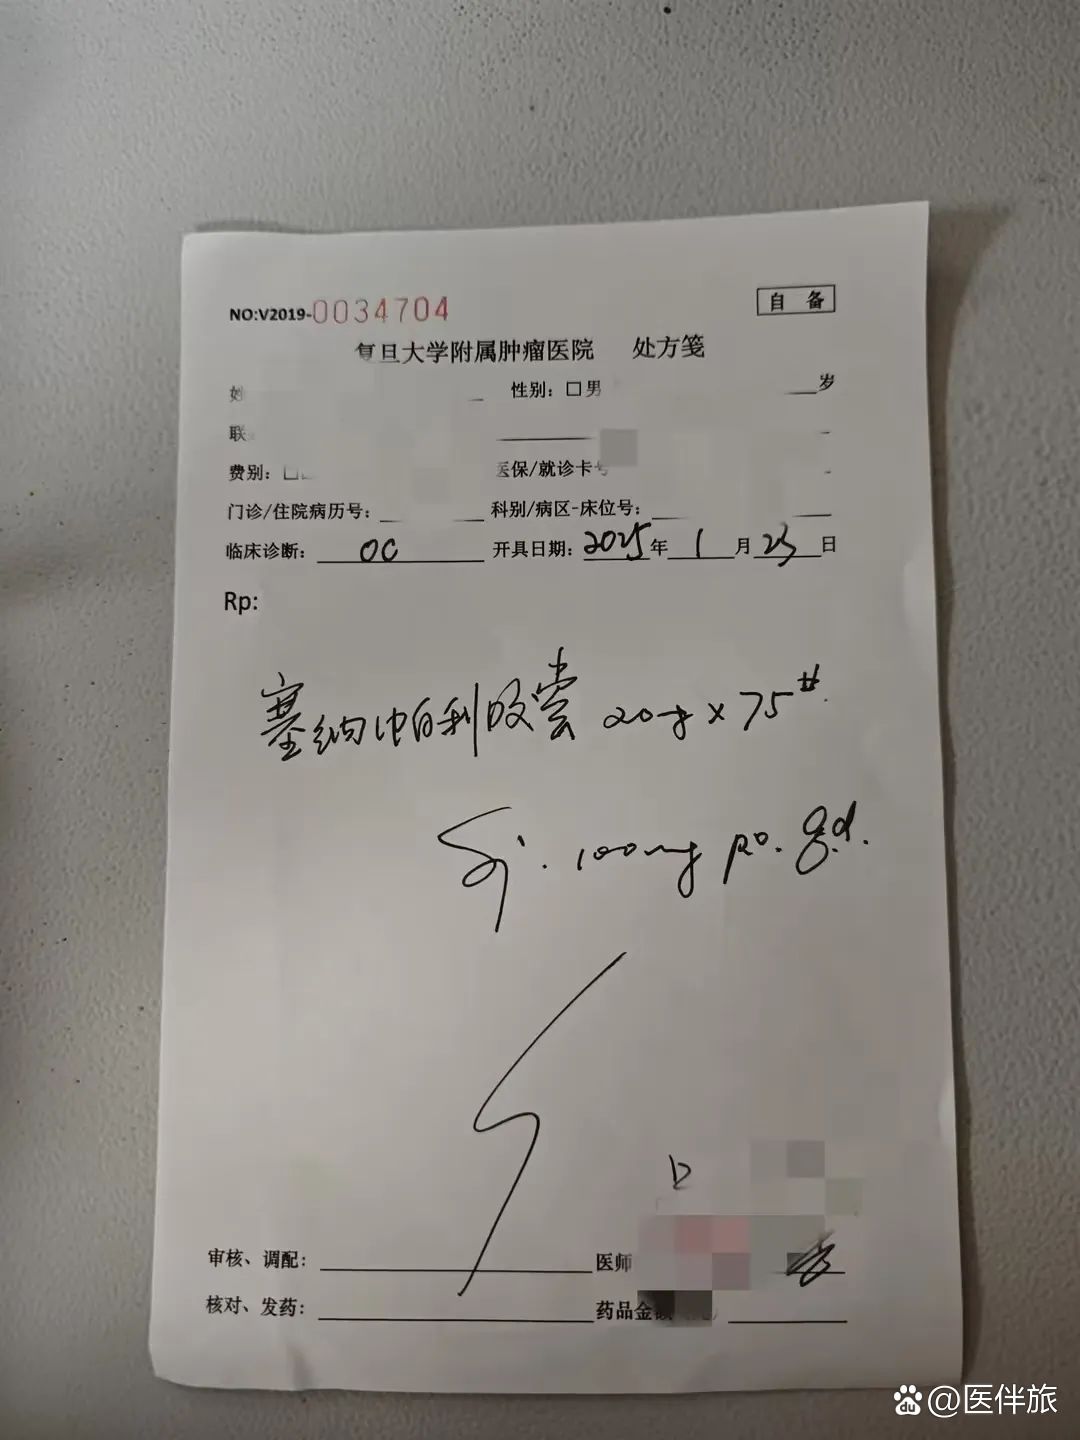 NO:V2019-0034704
自备
复旦大学附属肿瘤医院 处方笺
姓 性别：□男 岁
联
费别：□ 医保/就诊卡号
门诊/住院病历号： 科别/病区-床位号：
临床诊断： OC 开具日期：2025年1月23日
Rp:
塞纳帕利胶囊 20mg×75#
Sj. 100mg po. q.d.
审核、调配： 医师
核对、发药： 药品金额
@医伴旅